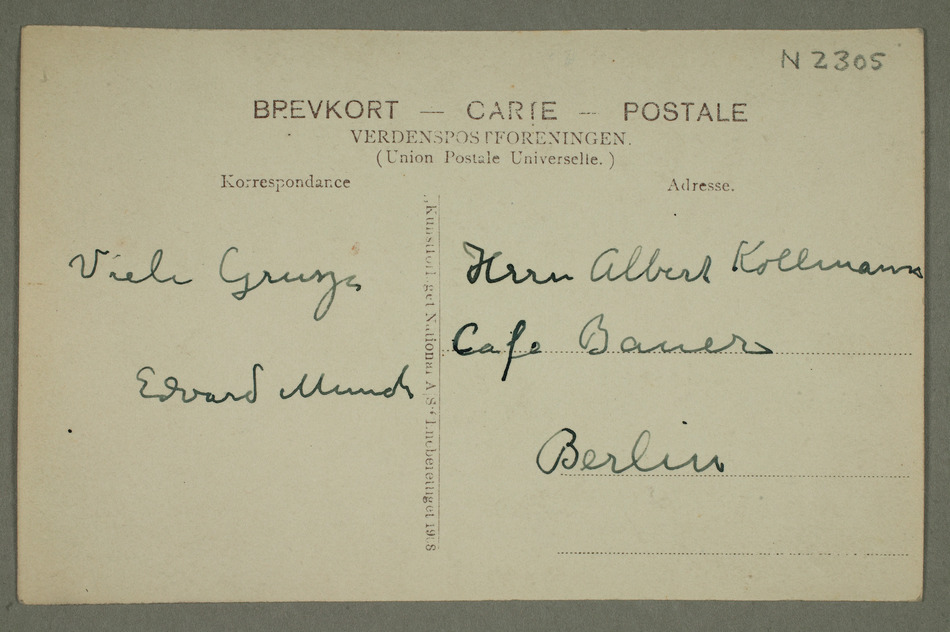 N 2305
BREVKORT — CARTE — POSTALE
VERDENSPOSTFORENINGEN.
(Union Postale Universelle.)
Korrespondance
Adresse.
Viele Grusze
Edvard Munch
„Kunstforlaget National A/S“ Eneberettiget 1908
Herrn Albert Kollmann
Cafe Bauer
Berlin